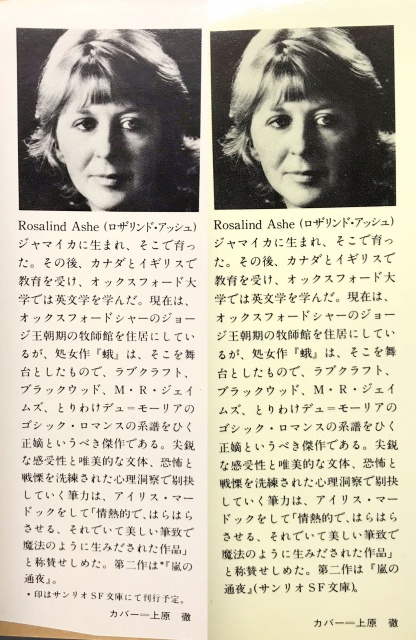 Rosalind Ashe (ロザリンド・アッシュ)
ジャマイカに生まれ、そこで育っ
た。その後、カナダとイギリスで
教育を受け、オックスフォード大
学では英文学を学んだ。現在は、
オックスフォードシャーのジョー
ジ王朝期の牧師館を住居にしてい
るが、処女作『蛾』は、そこを舞
台としたもので、ラブクラフト、
ブラックウッド、M・R・ジェイ
ムズ、とりわけデュ=モーリアの
ゴシック・ロマンスの系譜をひく
正嫡というべき傑作である。尖鋭
な感受性と唯美的な文体、恐怖と
戦慄を洗練された心理洞察で剔抉
していく筆力は、アイリス・マー
ドックをして「情熱的で、はらはら
させる、それでいて美しい筆致で
魔法のように生みだされた作品」
と称賛せしめた。第二作は*『嵐の
通夜』。
*印はサンリオSF文庫にて刊行予定。
カバー=上原 徹
Rosalind Ashe (ロザリンド・アッシュ)
ジャマイカに生まれ、そこで育っ
た。その後、カナダとイギリスで
教育を受け、オックスフォード大
学では英文学を学んだ。現在は、
オックスフォードシャーのジョー
ジ王朝期の牧師館を住居にしてい
るが、処女作『蛾』は、そこを舞
台としたもので、ラブクラフト、
ブラックウッド、M・R・ジェイ
ムズ、とりわけデュ=モーリアの
ゴシック・ロマンスの系譜をひく
正嫡というべき傑作である。尖鋭
な感受性と唯美的な文体、恐怖と
戦慄を洗練された心理洞察で剔抉
していく筆力は、アイリス・マー
ドックをして「情熱的で、はらはら
させる、それでいて美しい筆致で
魔法のように生みだされた作品」
と称賛せしめた。第二作は『嵐の
通夜』(サンリオSF文庫)。
カバー=上原 徹